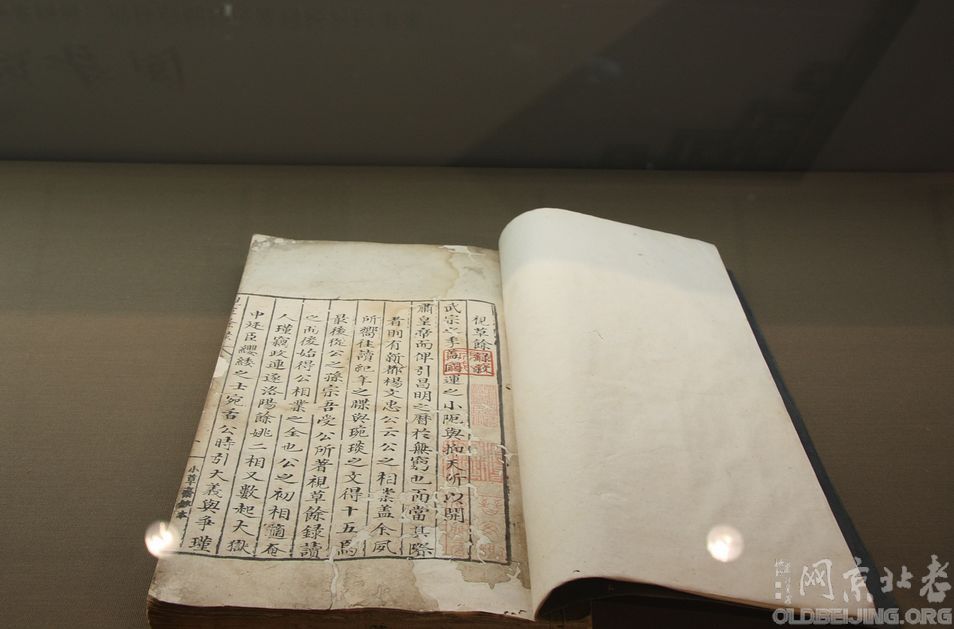 視草餘錄敘
武宗之季為國運之小阨與抑天所以開
肅皇帝而俾引昌明之曆於無窮也而當其際
者則有新都楊文忠公云公之相業蓋余夙
所嚮往讀紀年之牒與琬琰之文得十五焉
最後從公之孫宗吾受公所著視草餘錄讀
之而後始得公相業之全也公之初相適奄
人瑾竊政連逐洛陽餘姚二相又數起大獄
中廷臣纓緌之士宛舌公時引大義與爭瑾
小草齋鈔本
网京北老
OLDBEIJING.ORG